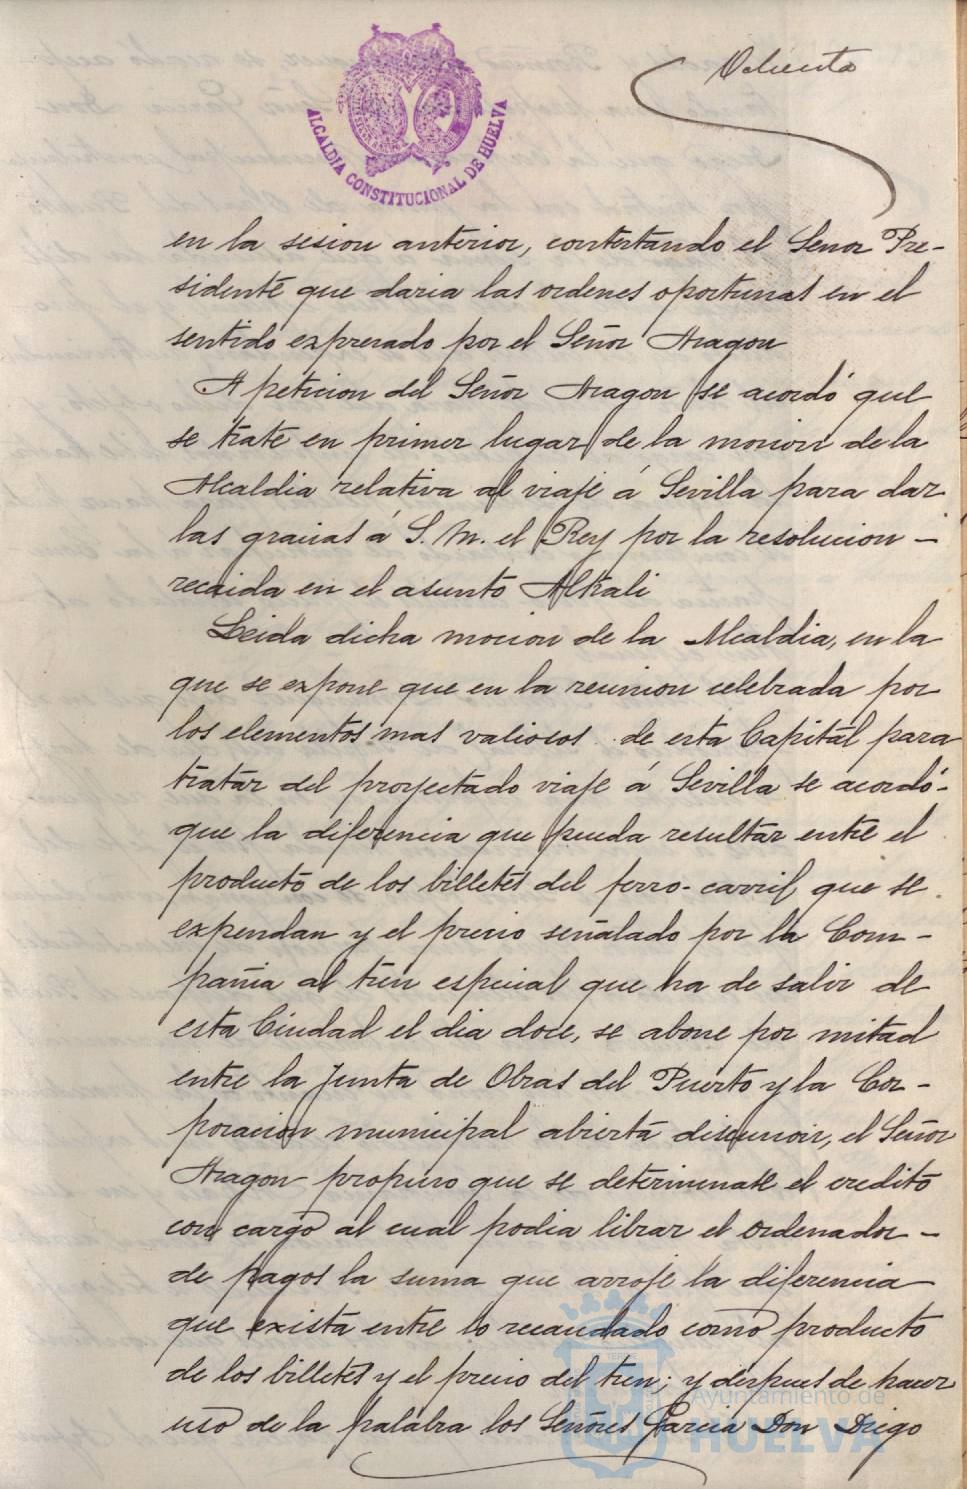 Ochenta
ALCALDIA CONSTITUCIONAL DE HUELVA
en la sesion anterior, contestando el Señor Pre-
sidente que daria las ordenes oportunas en el
sentido expresado por el Señor Aragon
A peticion del Señor Aragon se acordó que
se trate en primer lugar de la mocion de la
Alcaldia relativa al viaje á Sevilla para dar
las gracias á S. M. el Rey por la resolucion -
recaida en el asunto Alkali
Leida dicha mocion de la Alcaldia, en la
que se expone que en la reunion celebrada por
los elementos mas valiosos de esta Capital para
tratar del proyectado viaje á Sevilla se acordó-
que la diferencia que pueda resultar entre el
producto de los billetes del ferro-carril que se
expendan y el precio señalado por la Com-
pañia al tren especial que ha de salir de
esta Ciudad el dia doce, se abone por mitad
entre la Junta de Obras del Puerto y la Cor-
poracion municipal abierta discusion, el Señor
Aragon propuso que se determinase el credito
con cargo al cual podia librar el ordenador -
de pagos la suma que arroje la diferencia
que exista entre lo recaudado como producto
de los billetes y el precio del tren; y despues de hacer
uso de la palabra los Señores Garcia Don Diego
Ayuntamiento de
HUELVA